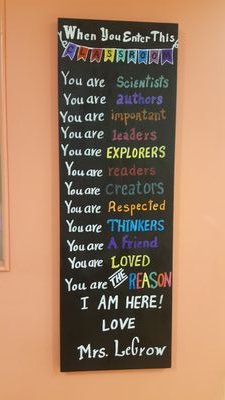 When You Enter This
CLASSROOM
You are Scientists
You are authors
You are important
You are leaders
You are EXPLORERS
You are readers
You are creators
You are Respected
You are THINKERS
You are A Friend
You are LOVED
You are THE REASON
I AM HERE!
LOVE
Mrs. LeGrow